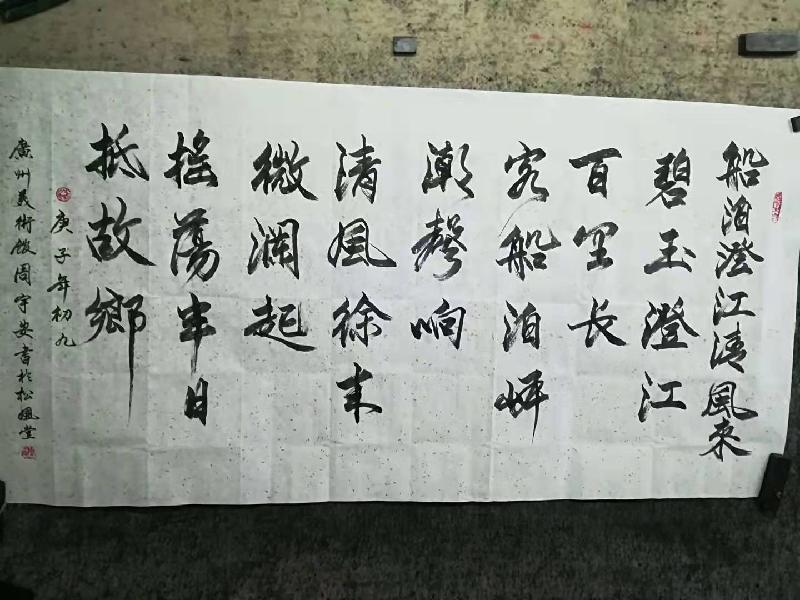 船泊澄江清風來
碧玉澄江
百里长
客船泊岸
潮聲响
清風徐来
微澜起
摇蕩半日
抵故鄉
庚子年初九
廣州美術館周宇安書於松風堂